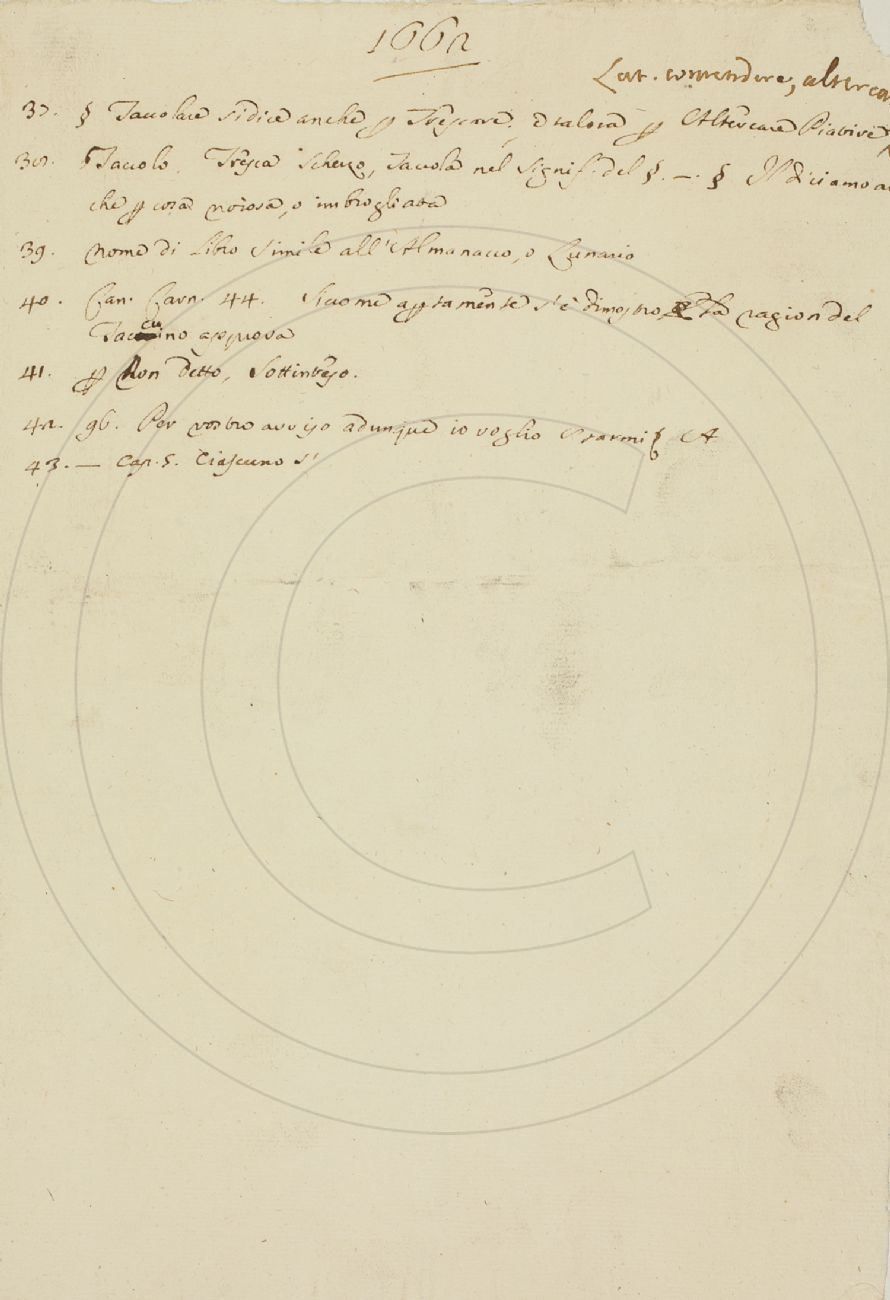 1662
Lat. contendere, alterca
37. § Taccolare si dice anche ꝑ Trescare, e talora ꝑ Altercare Piatire
38. Taccolo. Tresca Scherzo, Taccola nel signif. del §. —. § Il diciamo an
che ꝑ cosa noiosa, o imbrogliata
39. nome di Libro simile all'Almanacco, o Lunario
40. Can. Carn. 44. Siccome aptamente s'è dimostro la ragion del
Taccuino apposta
41. ꝑ Non detto, Sottinteso.
42. 96. Per vostro avviso adunque io voglio
43. — Cap. 5. Ciascuno s'